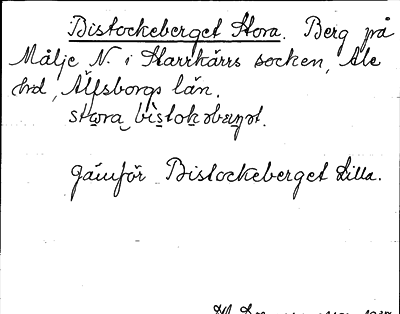 Bistockeberget Stora. Berg på
Målje N. i Starrkärrs socken, Ale
hd, Älfsborgs län.
stora bistokəbærjət.
Jämför Bistockeberget Lilla.